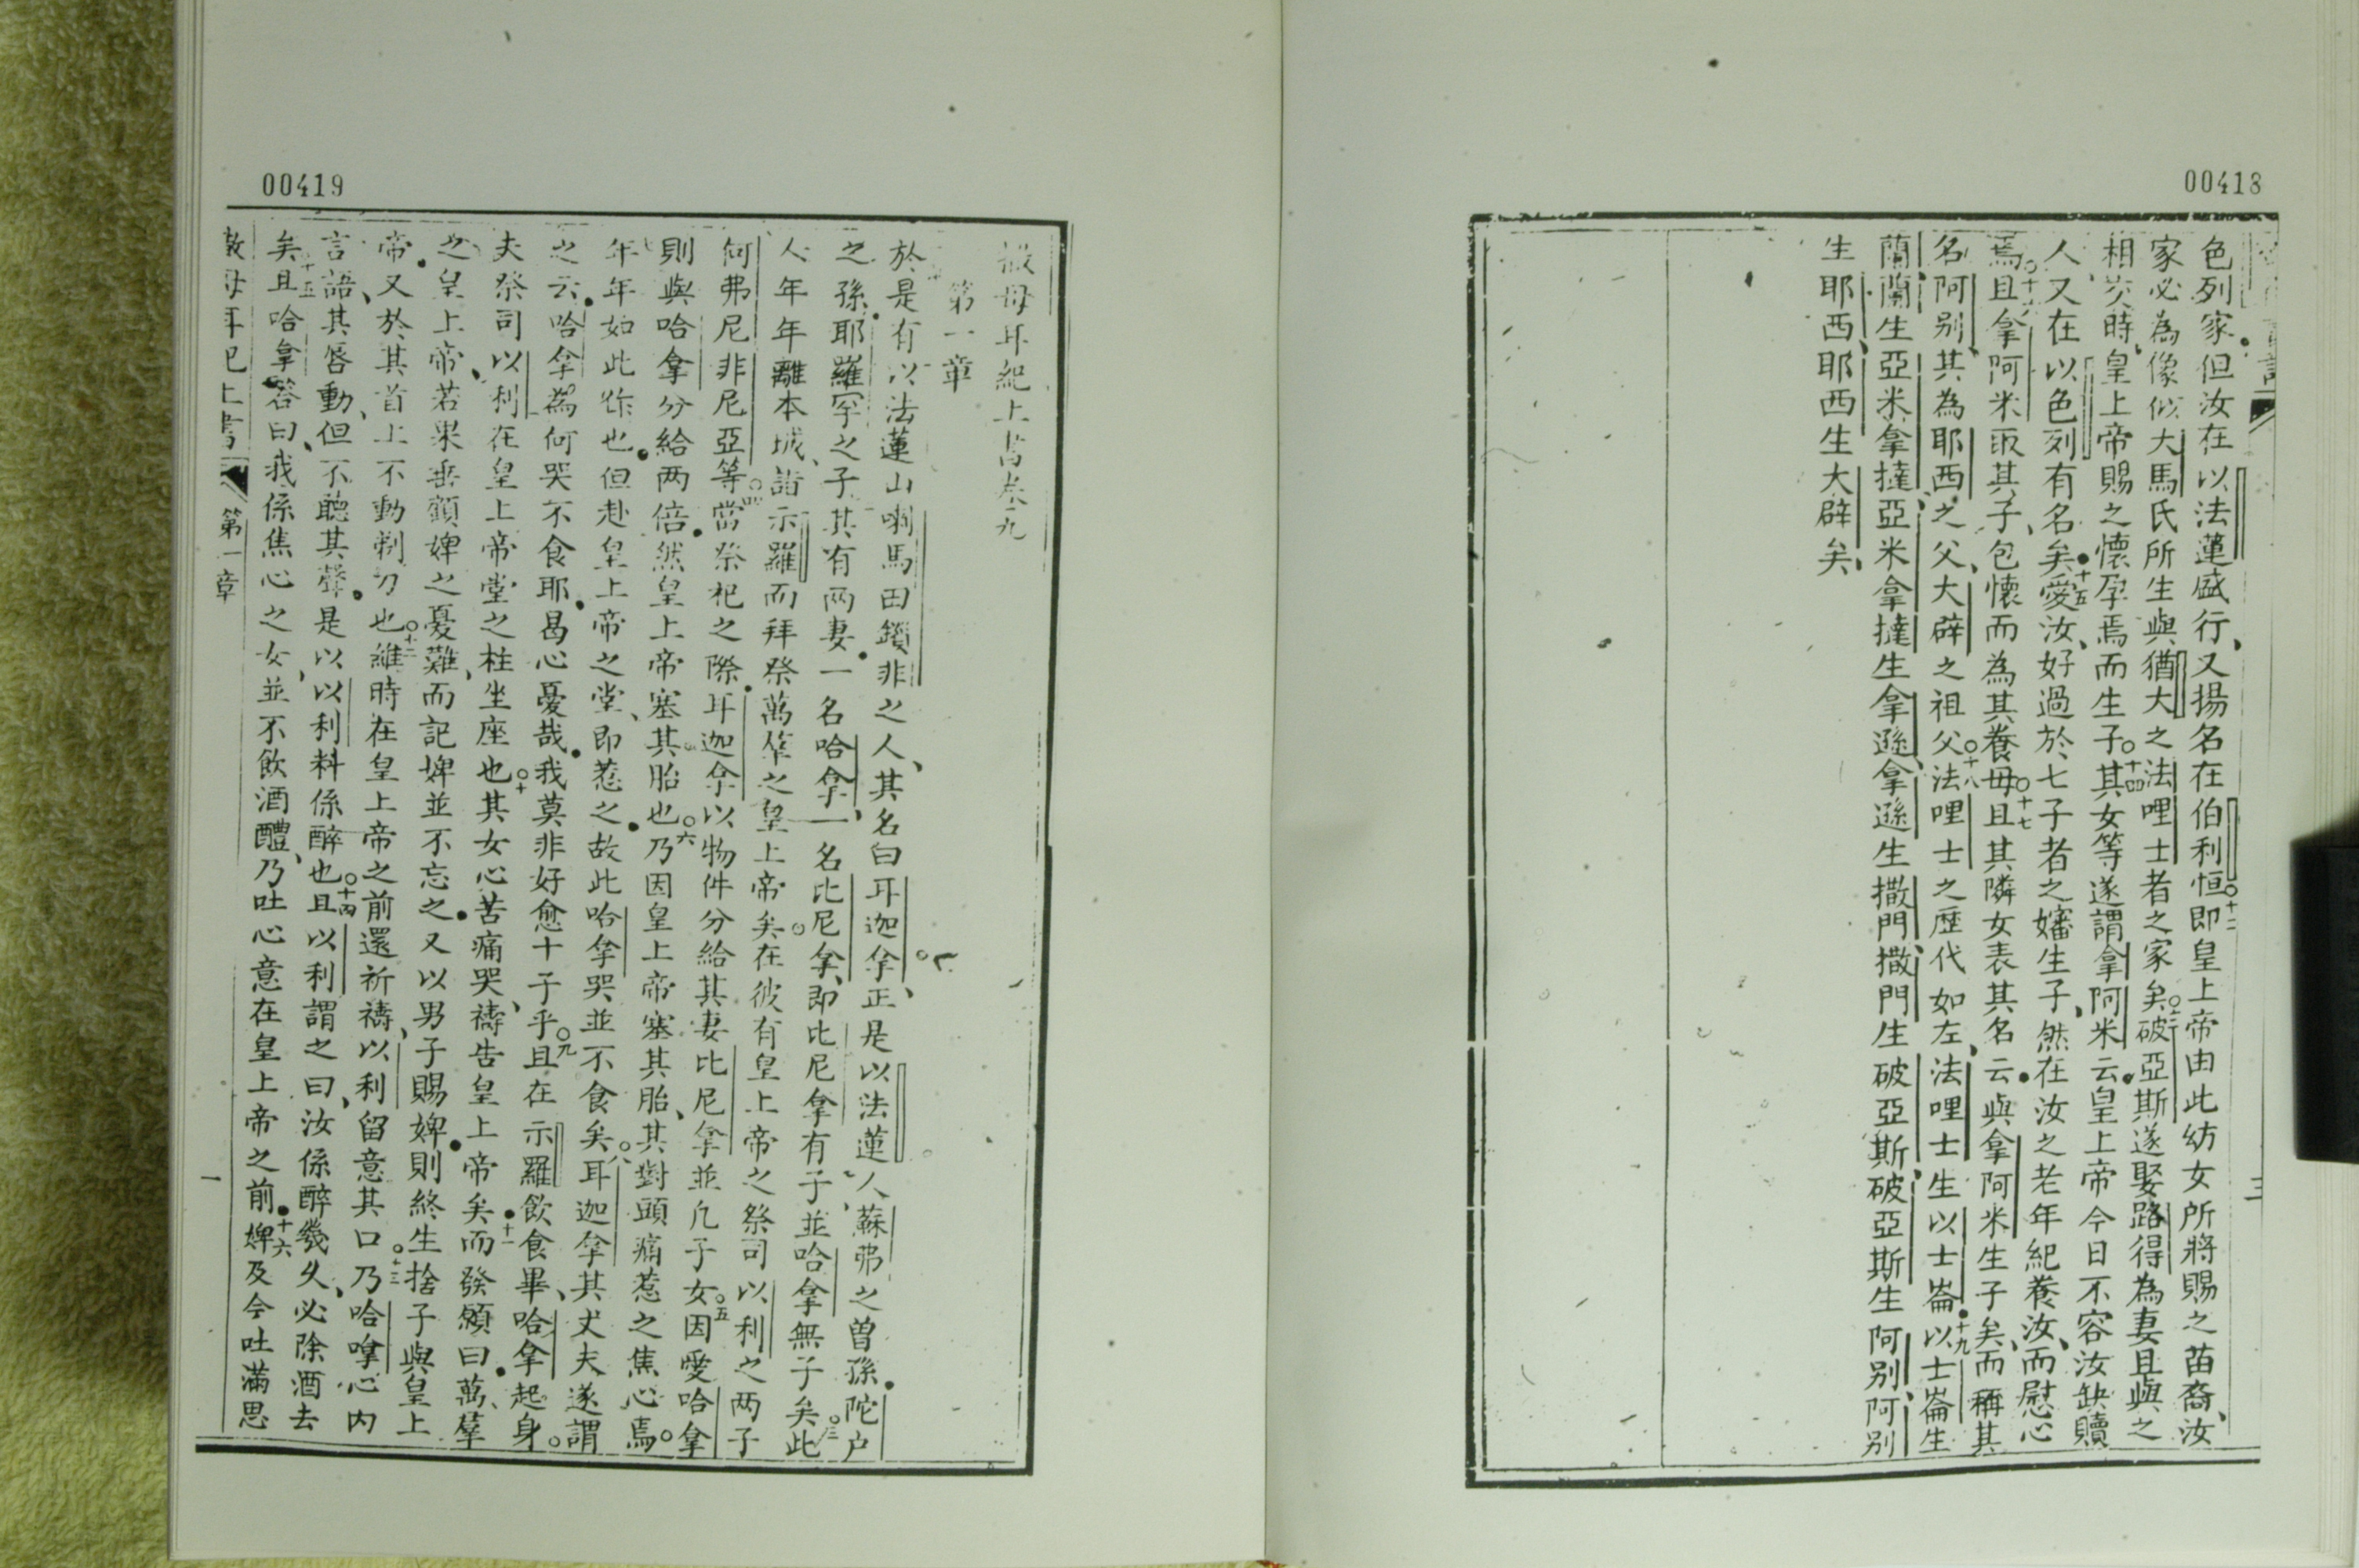 00418
色列家但汝在以法蓮盛行又揚名在伯利恒○十二即皇上帝由此幼女所將賜之苗裔汝
家必為像似大馬氏所生與猶大之法哩士者之家矣○十三破亞斯遂娶路得為妻且與之
相交時皇上帝賜之懷孕焉而生子○十四其女等遂謂拿阿米云皇上帝今日不容汝缺贖
人又在以色列有名矣十五愛汝好過於七子者之嬸生子然在汝之老年紀養汝而慰心
焉○十六且拿阿米取其子包懷而為其養母○十七且其隣女表其名云與拿阿米生子矣而稱其
名阿别其為耶西之父大辟之祖父○十八法哩士之歷代如左法哩士生以士崙十九以士崙生
蘭蘭生亞米拿撻亞米拿撻生拿遜拿遜生撒門撒門生破亞斯破亞斯生阿别阿别
生耶西耶西生大辟矣
三
00419
撒母耳紀上書卷九
第一章
於是有以法蓮山喇馬田鎖非之人其名曰耳迦拿正是以法蓮人蘇弗之曾孫陀户
之孫耶羅罕之子其有兩妻一名哈拿一名比尼拿即比尼拿有子並哈拿無子矣○三此
人年年離本城詣示羅而拜祭萬軍之皇上帝矣在彼有皇上帝之祭司以利之两子
何弗尼非尼亞等○四當祭祀之際耳迦拿以物件分給其妻比尼拿並凡子女○五因愛哈拿
則與哈拿分給两倍然皇上帝塞其胎也○六乃因皇上帝塞其胎其對頭痛惹之焦心焉○
年年如此作也但赴皇上帝之堂即惹之故此哈拿哭並不食矣○八耳迦拿其丈夫遂謂
之云哈拿為何哭不食耶曷心憂哉我莫非好愈十子乎○九且在示羅飲食畢哈拿起身○
夫祭司以利在皇上帝堂之柱坐座也○十其女心苦痛哭禱告皇上帝矣十一而發願曰萬羣
之皇上帝若果垂顧婢之憂難而記婢並不忘之又以男子賜婢則終生捨子與皇上
帝又於其首上不動剃刀也○十二維時在皇上帝之前還祈禱以利留意其口○十三乃哈嗱心内
言語其唇動但不聽其聲是以以利料係醉也○十四且以利謂之曰汝係醉幾久必除酒去
矣十五且哈拿答曰我係焦心之女並不飲酒醴乃吐心意在皇上帝之前十六婢及今吐滿思
撒母耳紀上書 第一章
一